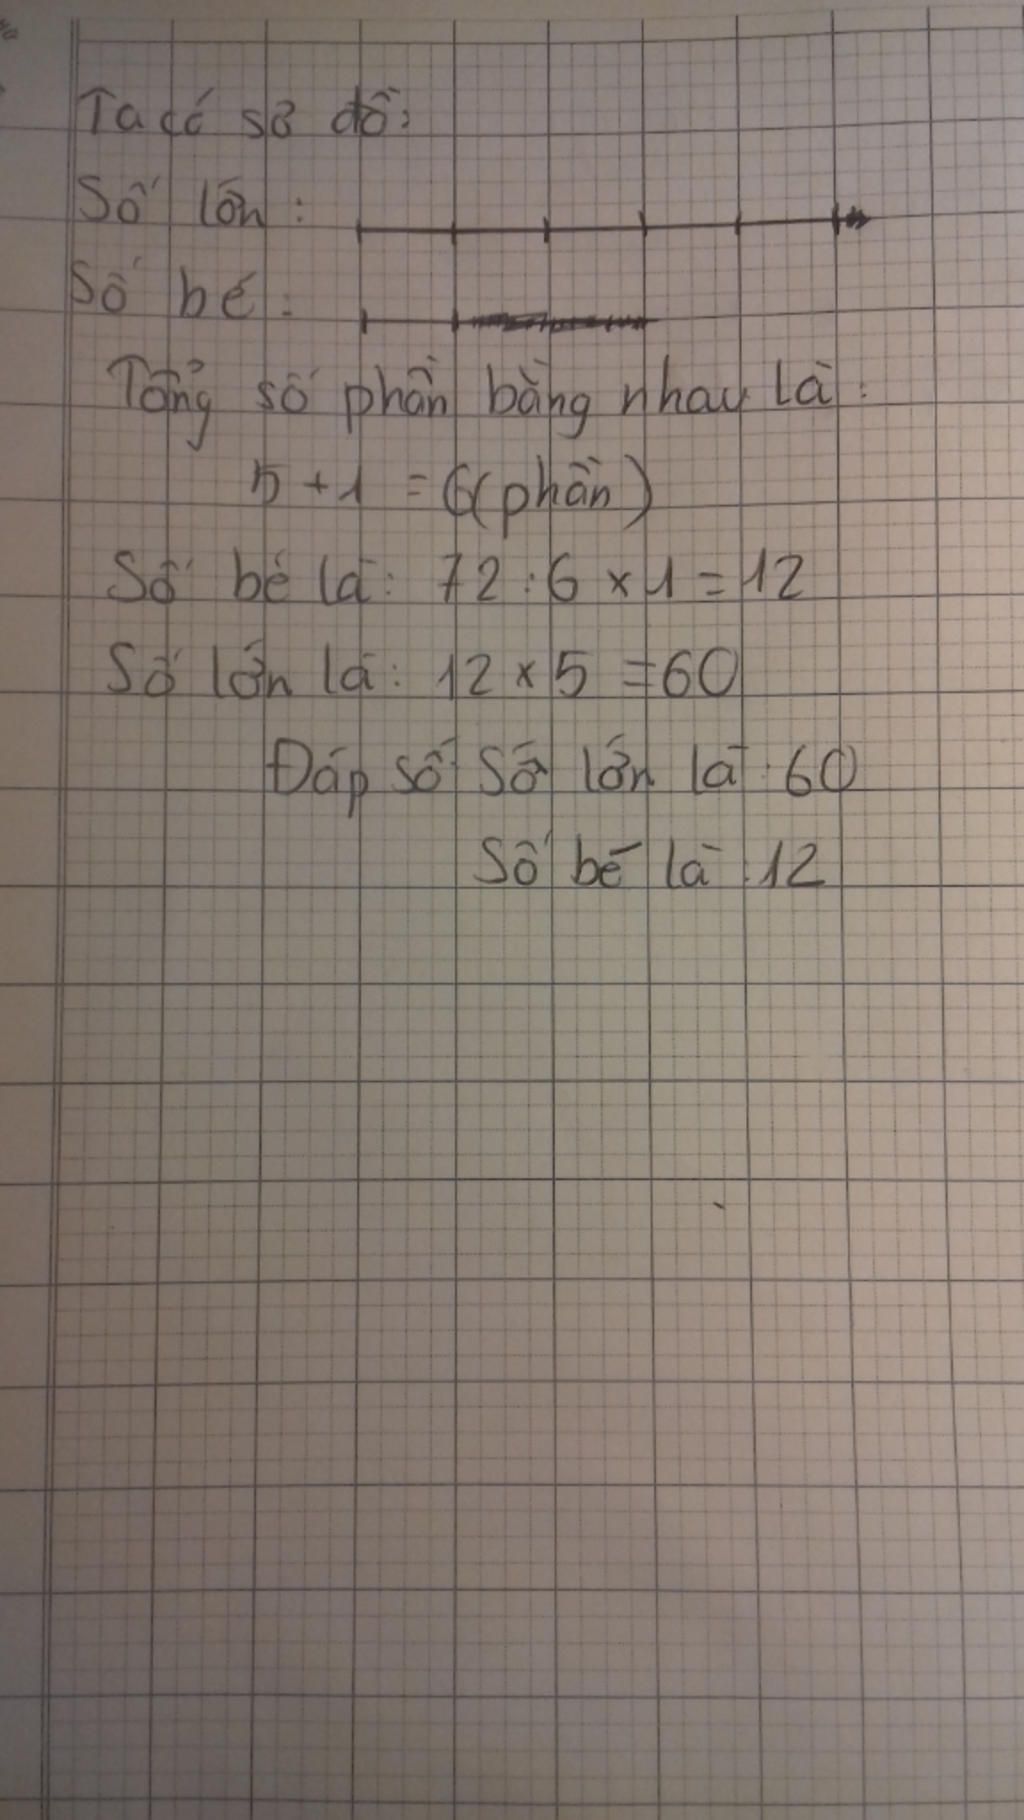 Ta có sơ đồ:
Số lớn:
Số bé:
Tổng số phần bằng nhau là:
5 + 1 = 6(phần)
Số bé là: 72 : 6 x 1 = 12
Số lớn là: 12 x 5 = 60
Đáp số Số lớn là: 60
Số bé là: 12